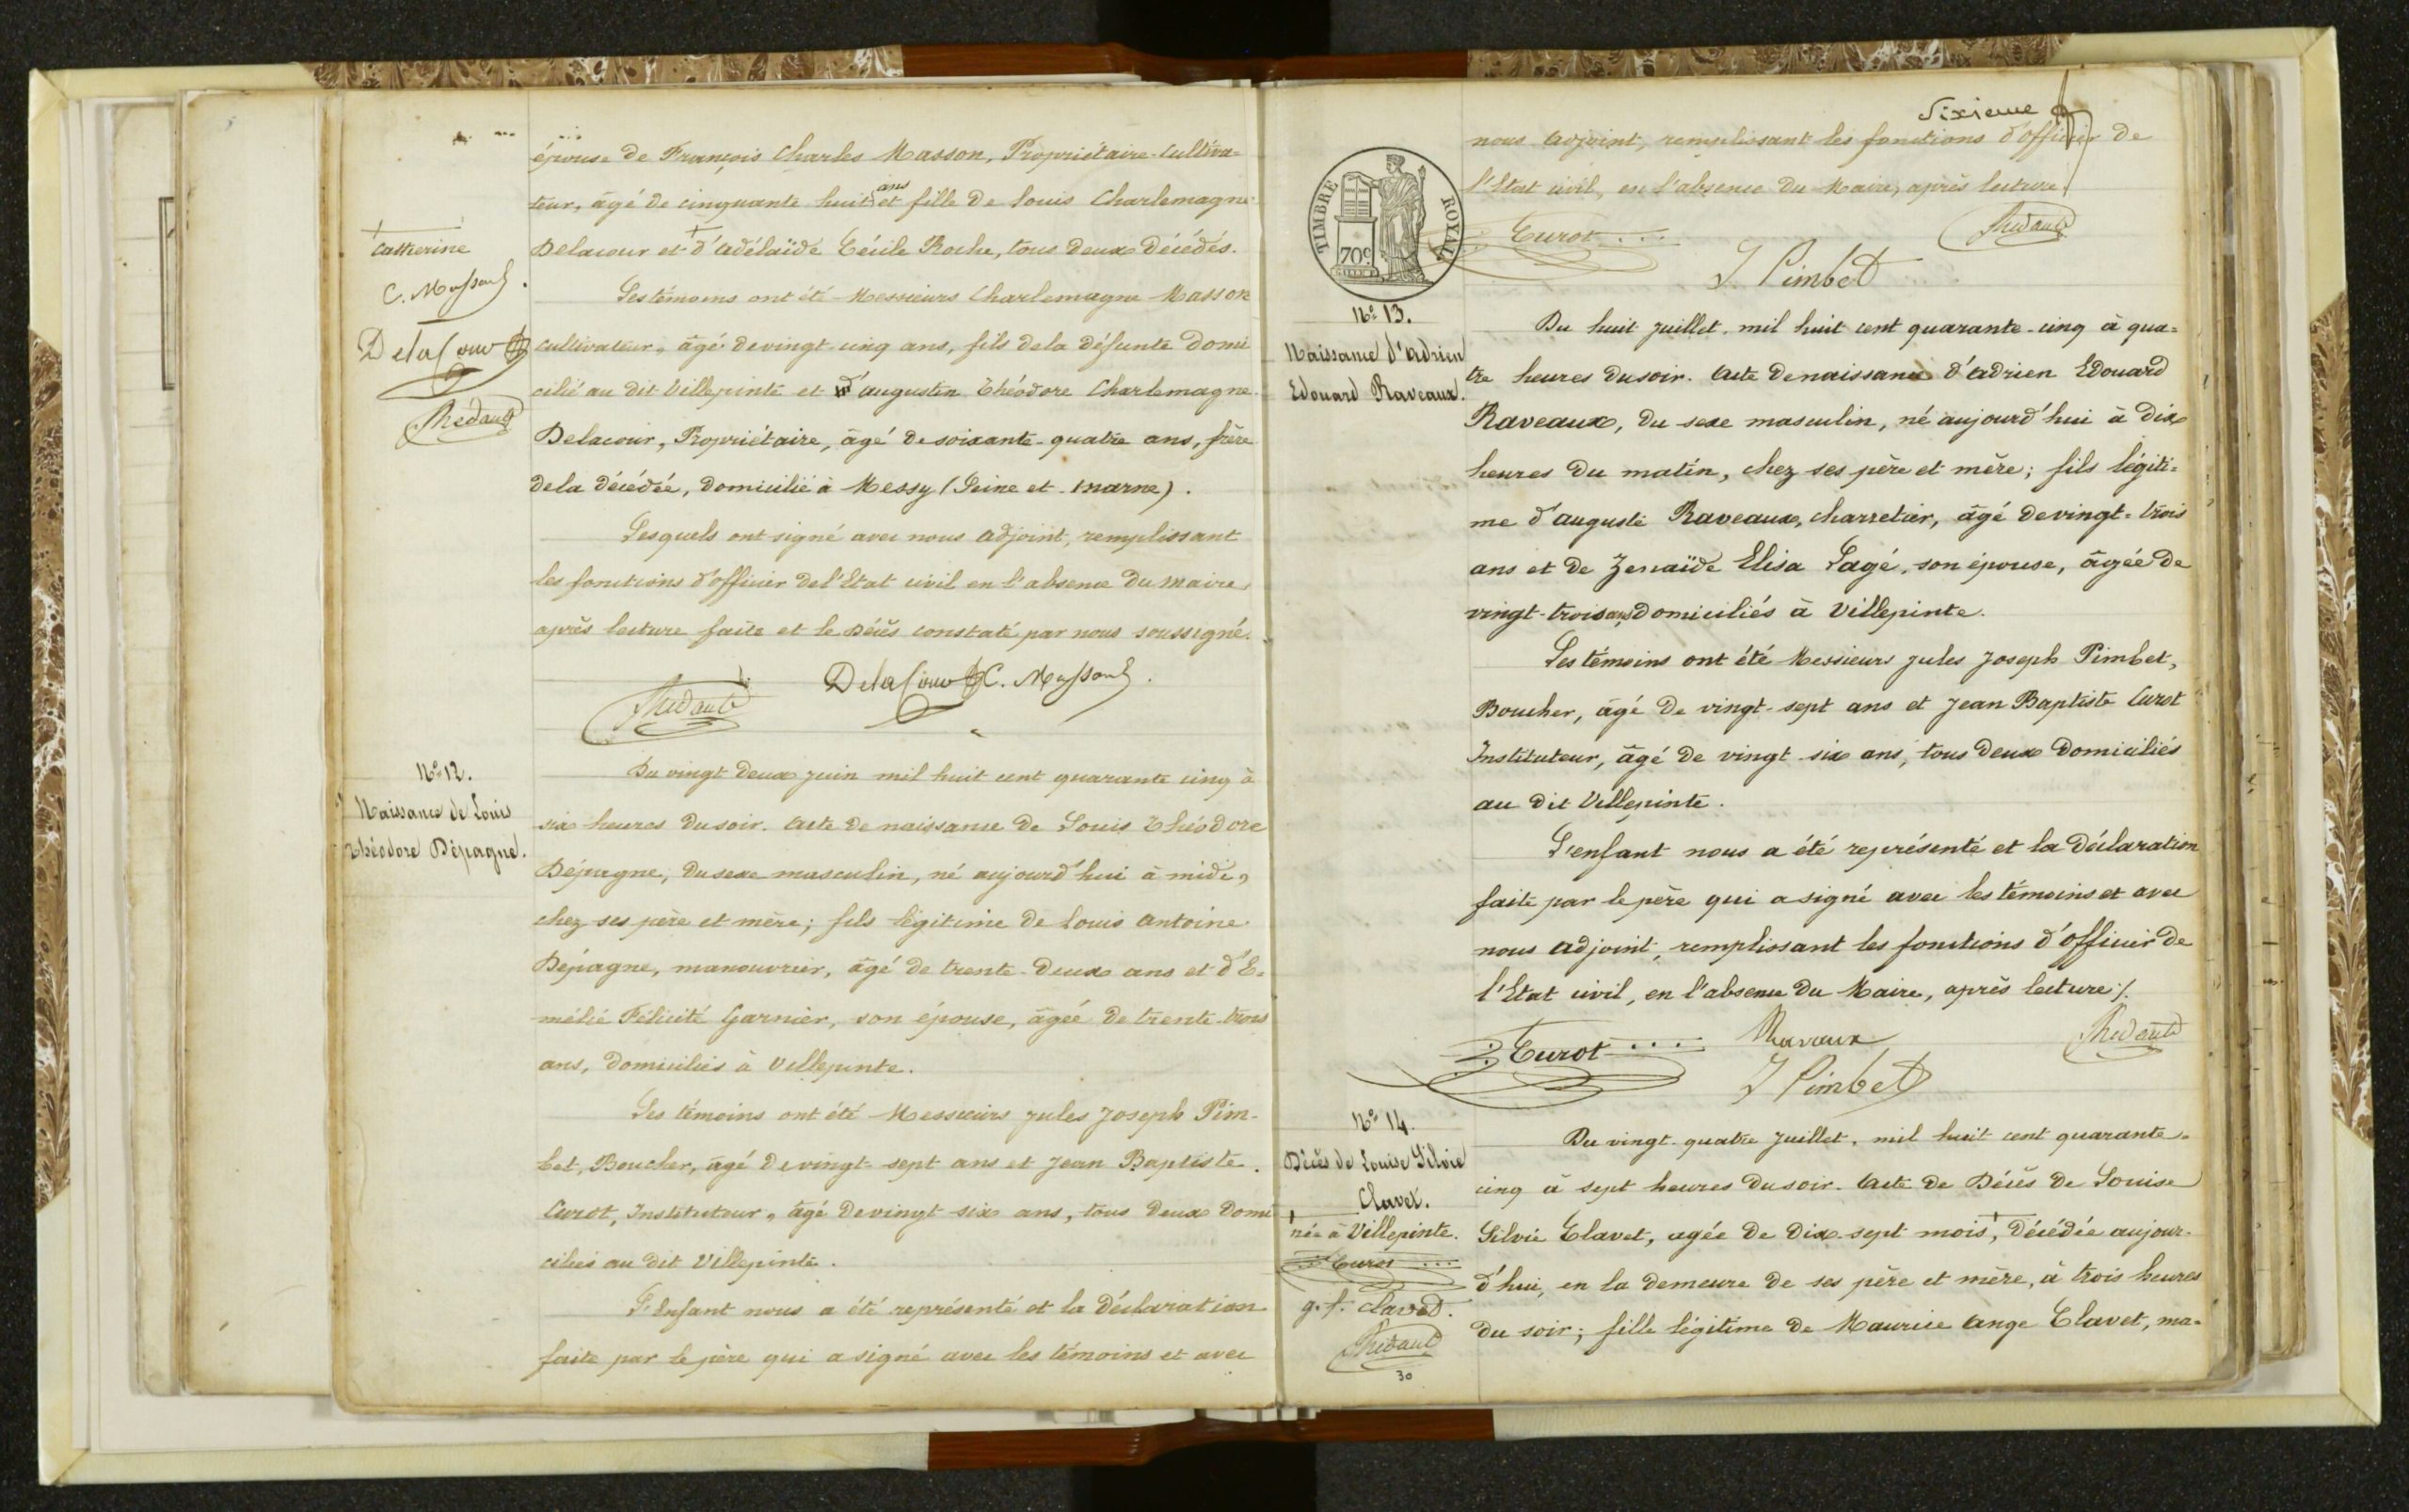 épouse de François Charles Masson, Propriétaire-Cultiva=
teur, âgé de cinquante huit ans et fille de Louis Charlemagne
Catherine
Delacour et d'adélaïde Cécile Roche, tous deux décédés.
C. Masson
Les témoins ont été Messieurs Charlemagne Masson
Delacour
cultivateur, âgé de vingt cinq ans, fils de la défunte domi
cilié au dit Villepinte et d'augustin Théodore Charlemagne
Thedault
Delacour, Propriétaire, âgé de soixante-quatre ans, frère
de la décédée, domicilié à Messy (Seine et-marne).
Lesquels ont signé avec nous adjoint, remplissant
les fonctions d'officier de l'Etat civil en l'absence du maire
après lecture faite et le décès constaté par nous soussigné.
Delacour C. Masson
Thedault
N° 12.
Naissance de Louis
Théodore Dépagne.
Du vingt deux juin mil huit cent quarante cinq à
six heures du soir. Acte de naissance de Louis Théodore
Dépagne, du sexe masculin, né aujourd'hui à midi,
chez ses père et mère; fils légitime de Louis antoine
Dépagne, manouvrier, âgé de trente-deux ans et d'E=
mélie Félicité Garnier, son épouse, âgée de trente-trois
ans, domiciliés à Villepinte.
Les témoins ont été Messieurs Jules Joseph Pim-
bet, Boucher, âgé de vingt-sept ans et Jean Baptiste
Curot, Instituteur, âgé de vingt-six ans, tous deux domi
ciliés au dit Villepinte.
L'Enfant nous a été représenté et la déclaration
faite par le père qui a signé avec les témoins et avec
Sixieme
nous adjoint, remplissant les fonctions d'officier de
l'Etat civil, en l'absence du Maire, après lecture
TIMBRE ROYAL
70c
Curot
Thedault
J Pimbet
N° 13.
Naissance d'adrien
Edouard Raveaux.
Du huit juillet, mil huit cent quarante-cinq à qua=
tre heures du soir. Acte de naissance d'adrien Edouard
Raveaux, du sexe masculin, né aujourd'hui à dix
heures du matin, chez ses père et mère; fils légiti=
me d'auguste Raveaux, charretier, âgé de vingt-trois
ans et de Zenaïde Elisa Lagé, son épouse, âgée de
vingt-trois ans domiciliés à Villepinte.
Les témoins ont été Messieurs Jules Joseph Pimbet,
Boucher, âgé de vingt-sept ans et Jean Baptiste Curot
Instituteur, âgé de vingt-six ans, tous deux domiciliés
au dit Villepinte.
L'enfant nous a été représenté et la déclaration
faite par le père qui a signé avec les témoins et avec
nous adjoint, remplissant les fonctions d'officier de
l'Etat civil, en l'absence du Maire, après lecture /.
Curot Ravaux Thedault
J Pimbet
N° 14.
Décès de Louise Silvie
Clavet.
née à Villepinte.
Curot
g. f. Clavet.
Thedault
30
Du vingt-quatre juillet, mil huit cent quarante-
cinq à sept heures du soir. Acte de Décès de Louise
Silvie Clavet, agée de dix-sept mois, décédée aujour-
d'hui, en la demeure de ses père et mère, à trois heures
du soir; fille légitime de Maurice ange Clavet, ma-